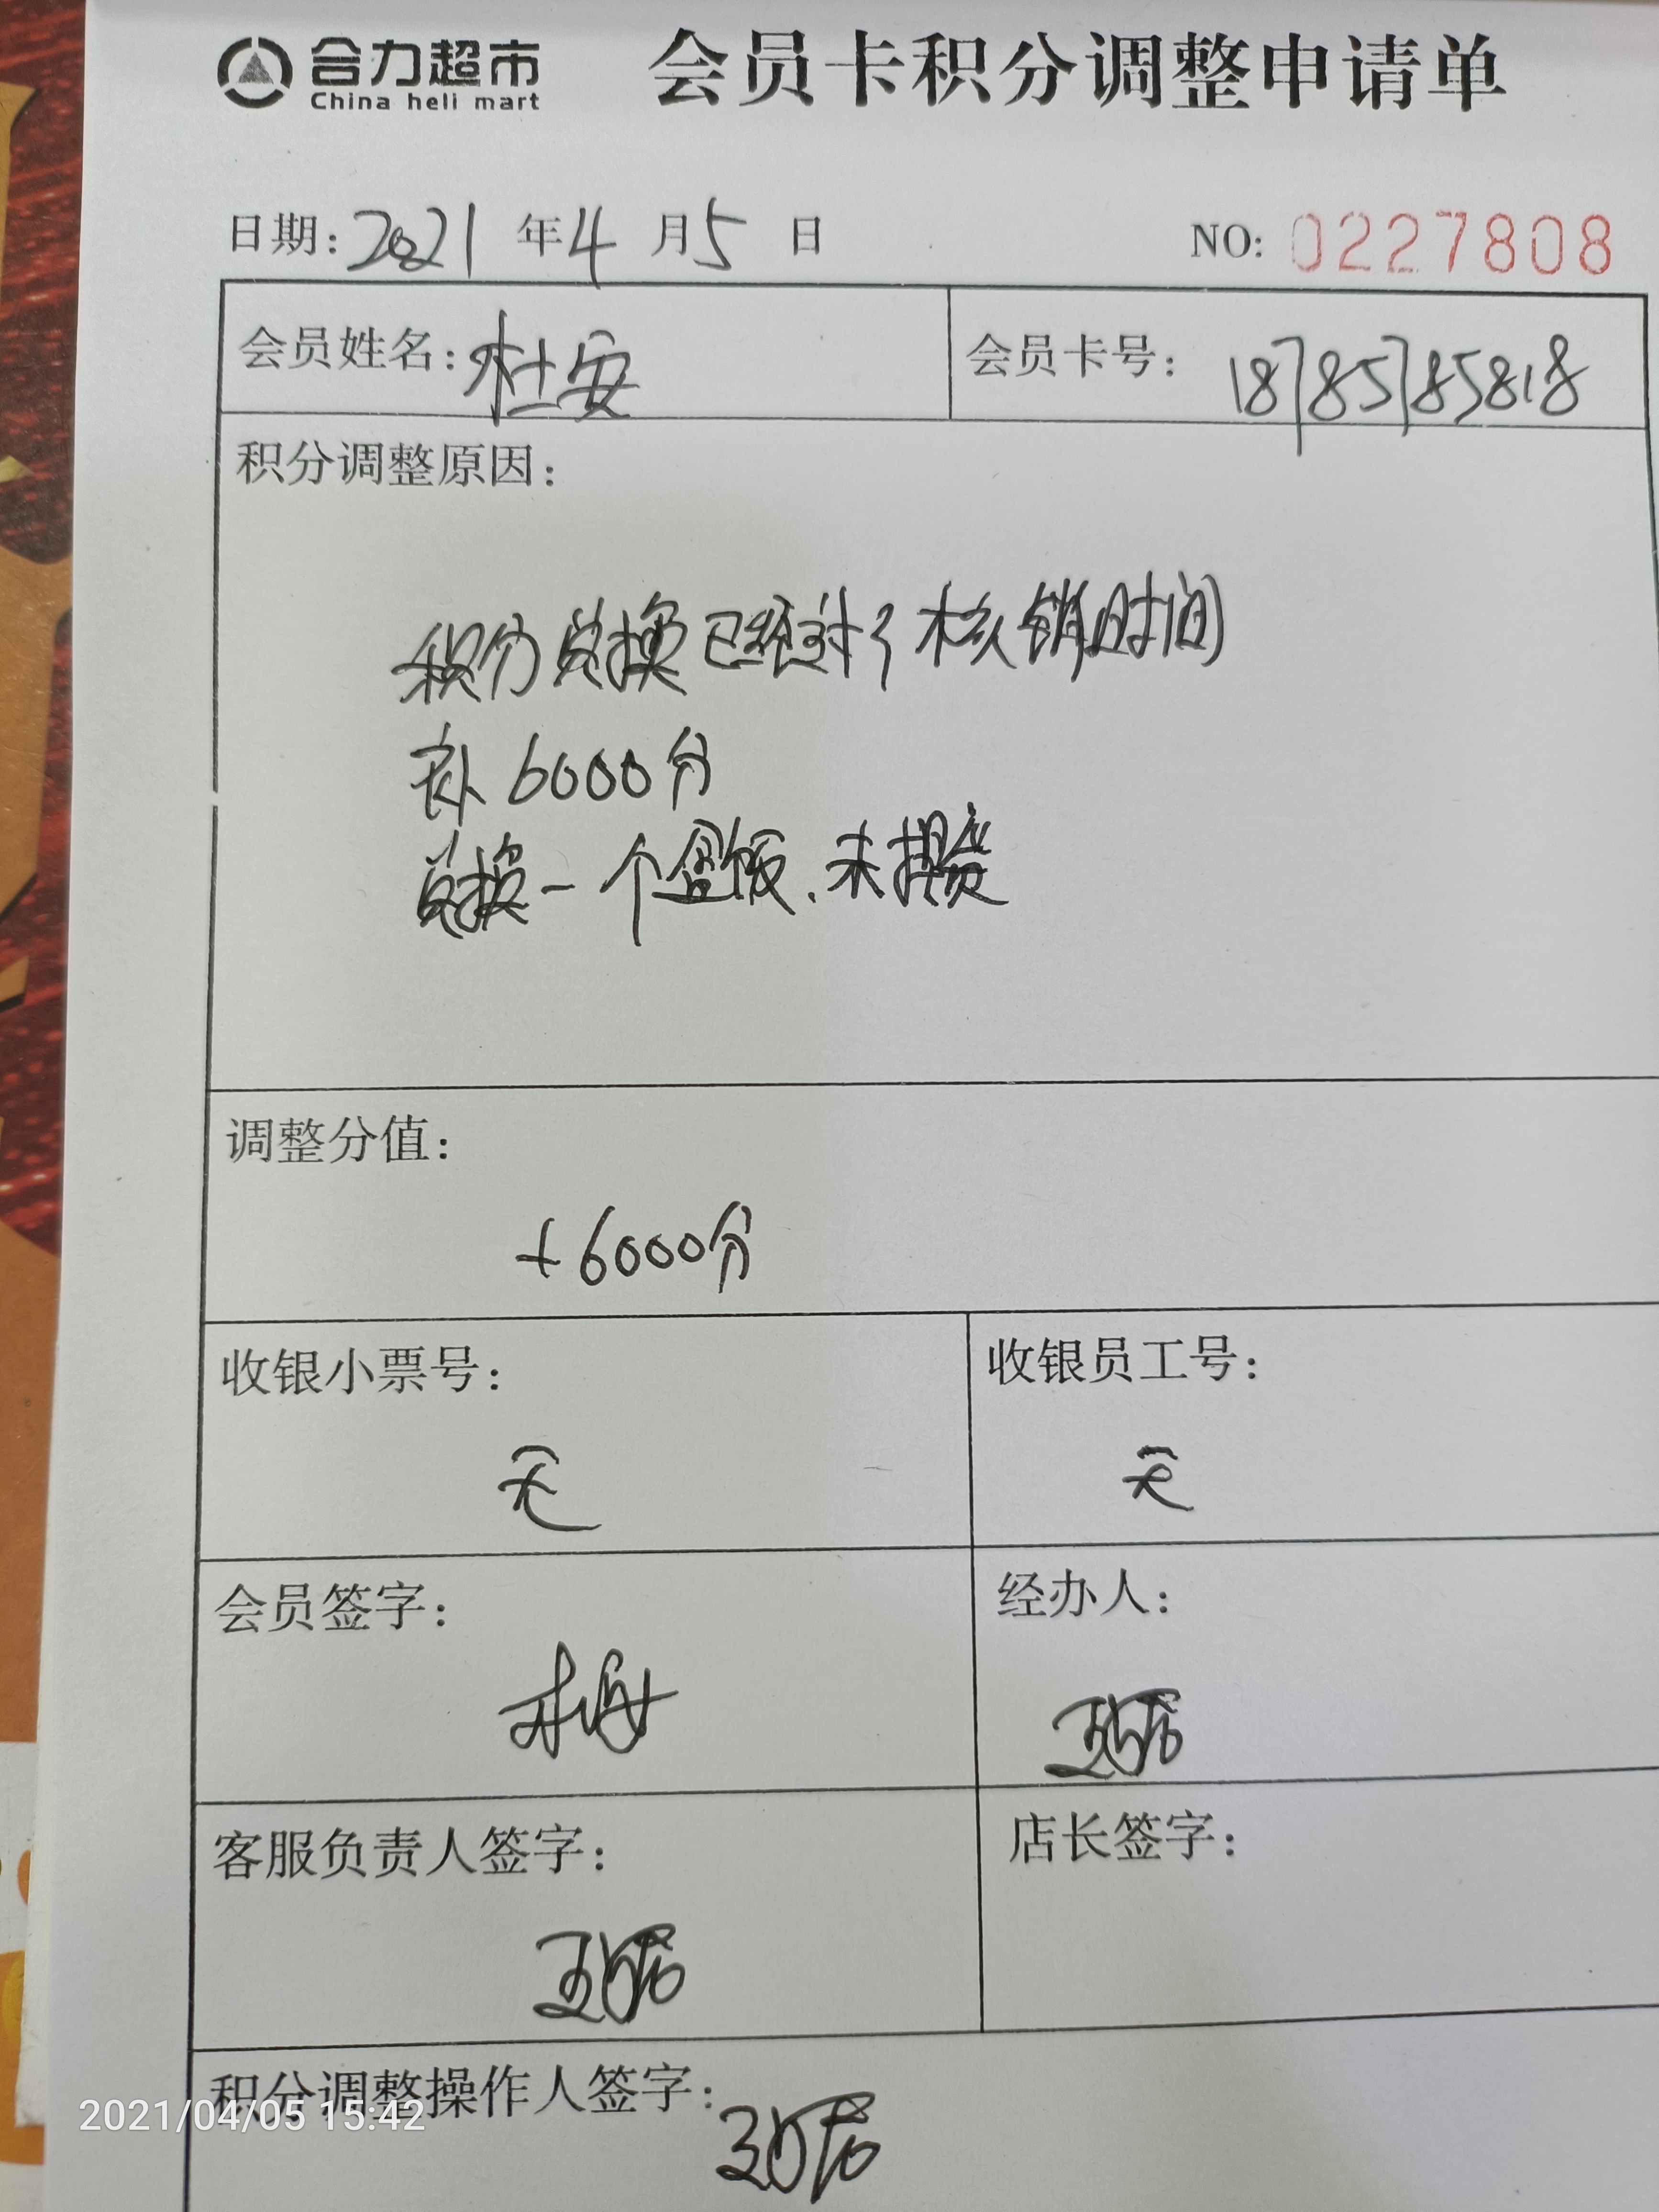 合力超市
China heli mart
会员卡积分调整申请单
日期：2021年4月5日
NO: 0227808
会员姓名：杜安
会员卡号：18785785818
积分调整原因：
积分兑换已经过了核销时间
补6000分
兑换一个盒饭.未提货
调整分值：
+6000分
收银小票号：
无
收银员工号：
无
会员签字：
经办人：
客服负责人签字：
店长签字：
积分调整操作人签字：
2021/04/05 15:42